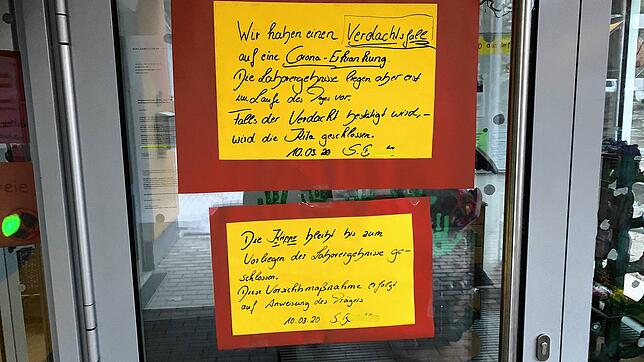 Wir haben einen Verdachtsfall
auf eine Corona-Erkrankung.
Die Laborergebnisse liegen aber erst
im Laufe des Tages vor.
Falls der Verdacht bestätigt wird,
wird die Kita geschlossen.
10.03.20
Die Krippe bleibt bis zum
Vorliegen der Laborergebnisse ge-
schlossen.
Diese Vorsichtsmaßnahme erfolgt
auf Anweisung des Trägers
10.03.20